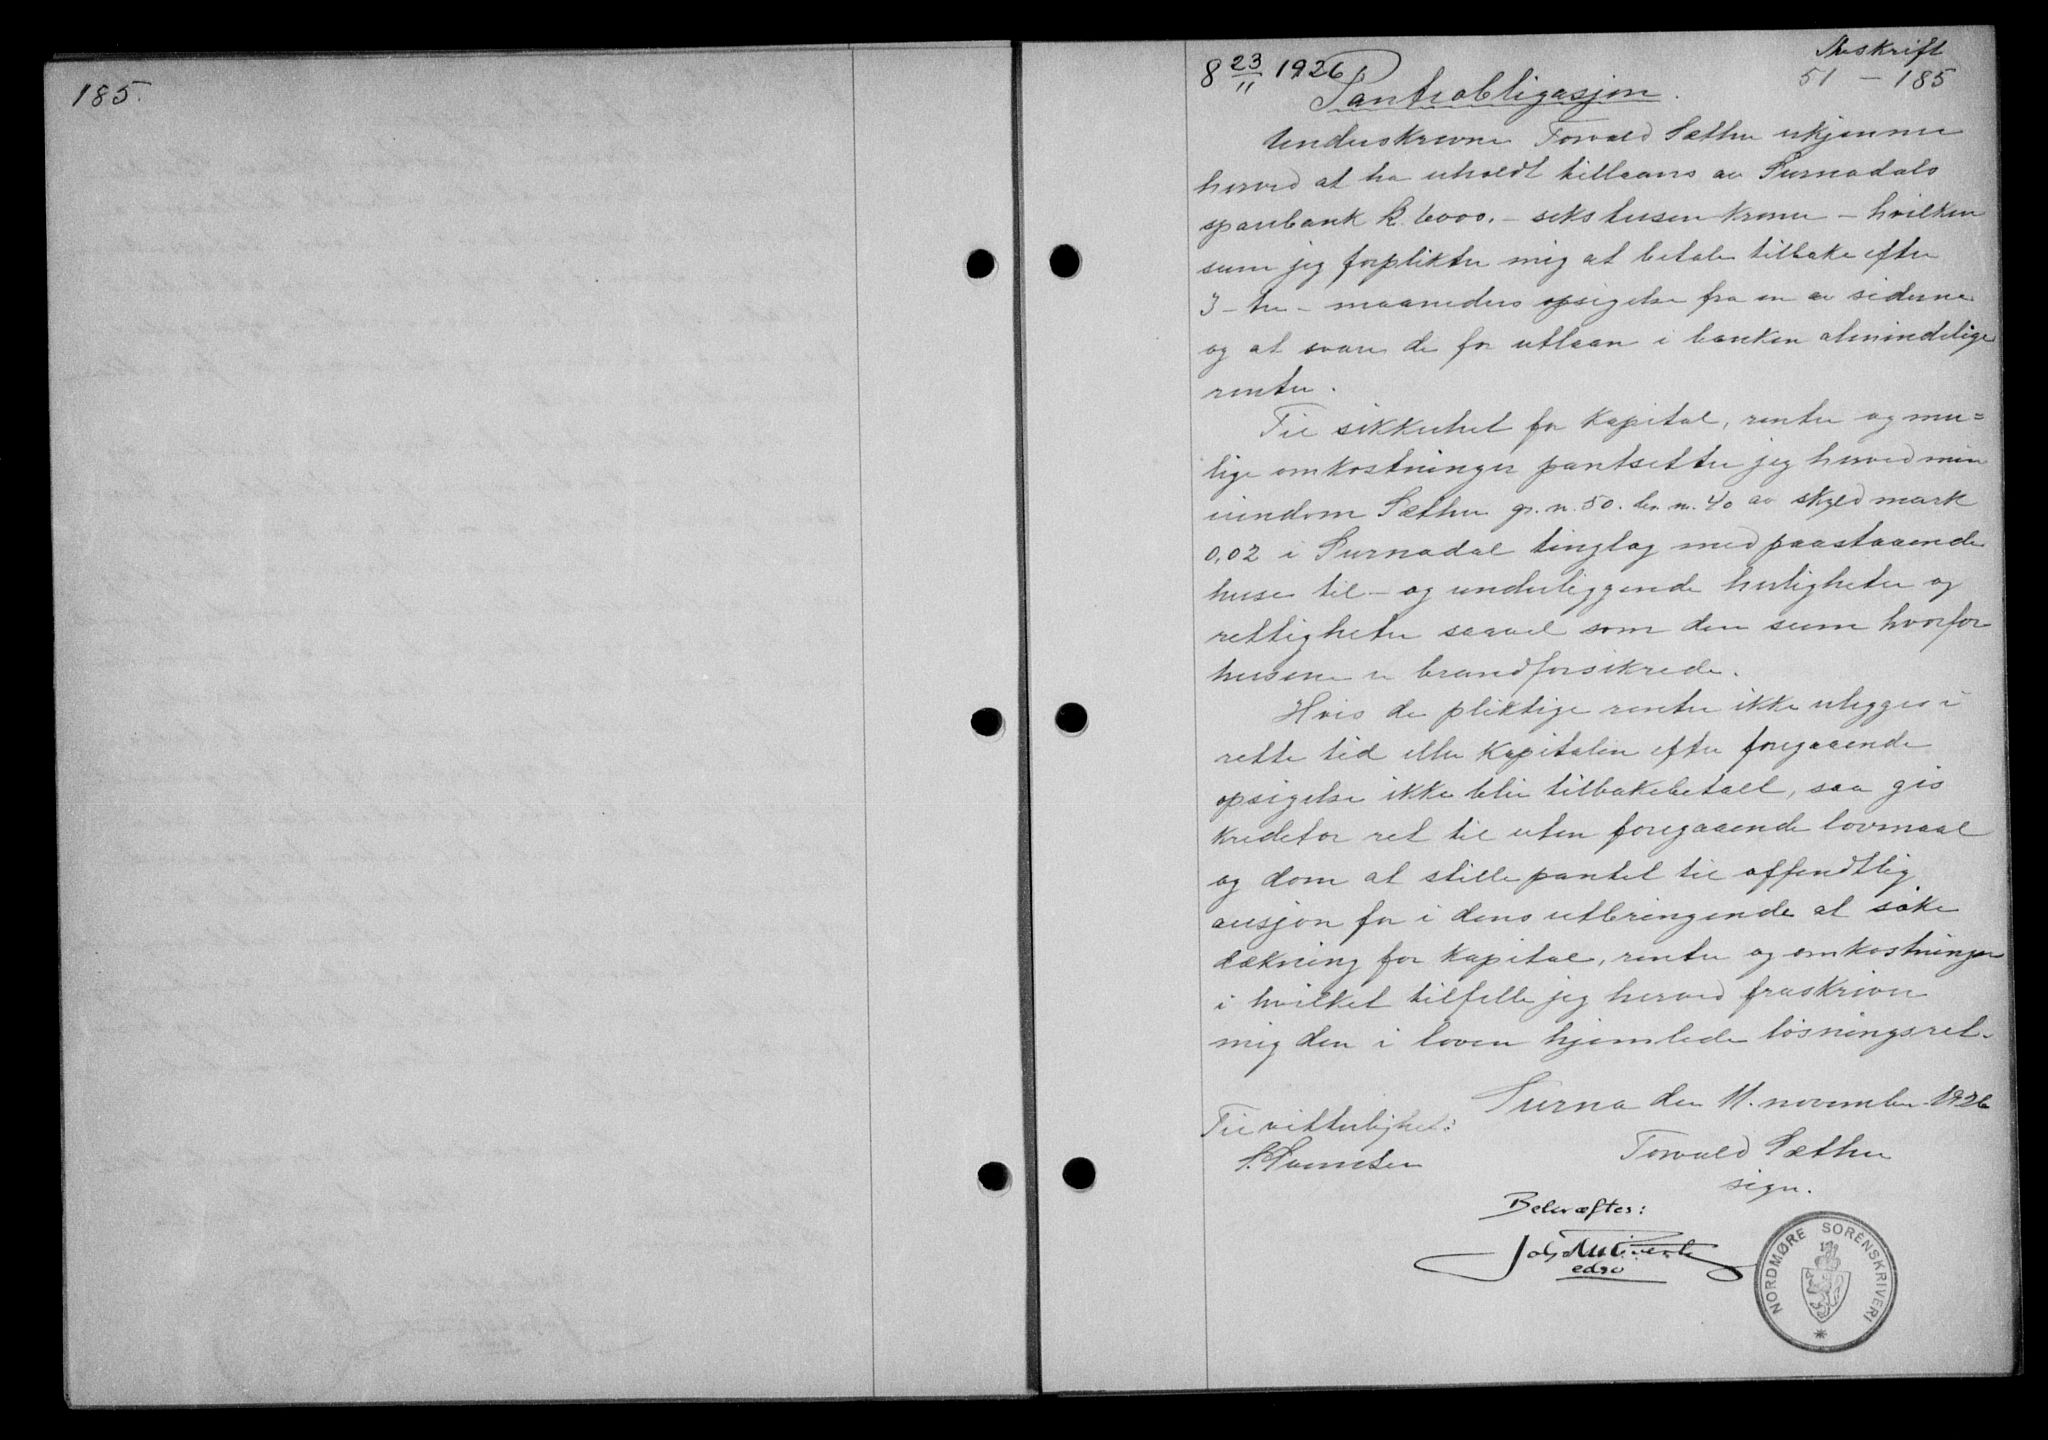 185.
Avskrift
8 23/11 1926
51 - 185
Pantobligasjon.
Underskrevne Torvald Sæther erkjenner
herved at ha erholdt tillaans av Surnadals
sparebank k. 6000.- seks tusen kroner - hvilken
sum jeg forplikter mig at betale tilbake efter
3 - tre - maaneders opsigelse fra en av siderne
og at svare de for utlaan i banken almindelige
renter.
Til sikkerhet for kapital, renter og mu=
lige omkostninger pantsetter jeg herved min
eiendom Sæther gr. n. 50. br. n. 40 av skyld mark
0,02 i Surnadal tinglag med paastaaende
huse til - og underliggende herligheter og
rettigheter saavel som den sum hvorfor
husene er brandforsikrede.
Hvis de pliktige renter ikke erlegges i
rette tid eller kapitalen efter foregaaende
opsigelse ikke blir tilbakebetalt, saa gis
kreditor ret til uten foregaaende lovmaal
og dom at stille pantet til offendtlig
ausjon for i dens utbringende at søke
dækning for kapital, renter og omkostninger
i hvilket tilfelle jeg herved fraskriver
mig den i loven hjemlede løsningsret.
Surna den 11. november 1926
Til vitterlighet:
Torvald Sæther
sign.
Bekræftes:
edsv
NORDMØRE SORENSKRIVERI